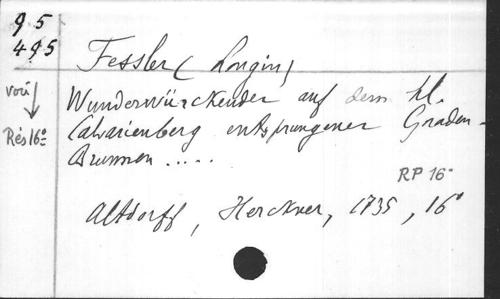 95
495
Fessler (Longin)
voir
Rés 16º
Wunderwürckender auf dem hl.
Calvarienberg entsprungener Graden-
Brunnen .....
RP 16º
Altdorff, Herckner, 1735, 16º